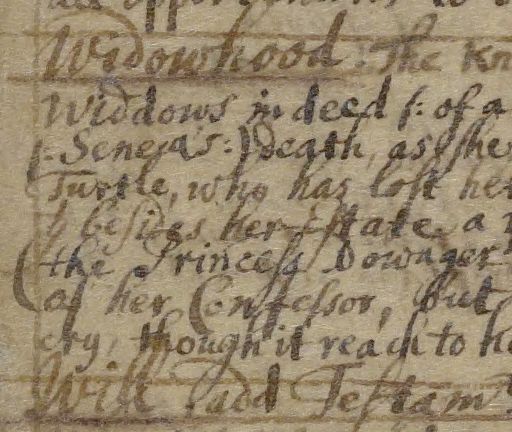 all opportunities
Widowhood: The Kn
Widdows in deed (: of a
(: Seneca's :) death, as she
Turtle, who has lost her
besides her Estate. a
(the Princess Dowager
of her Confessor, but
cry, though it reach to he
Will and Testam